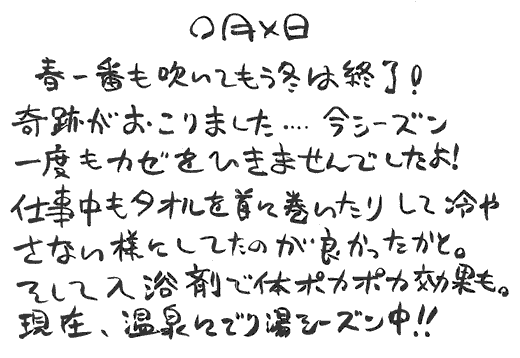 〇月×日
春一番も吹いてもう冬は終了!
奇跡がおこりました‥‥今シーズン
一度もカゼをひきませんでしたよ!
仕事中もタオルを首に巻いたりして冷や
さない様にしてたのが良かったかと。
そして入浴剤で体ポカポカ効果も。
現在、温泉にでり湯シーズン中!!